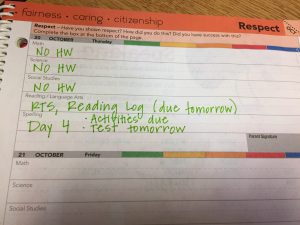 Fairness • caring • citizenship
Respect
Respect – Have you shown respect? How did you do this? Did you have success with this?
Complete the box at the bottom of the page.
20 OCTOBER Thursday
Math
NO HW
Science
NO HW
Social Studies
NO HW
Reading/Language Arts
RTS, Reading Log (due tomorrow)
Spelling
• Activities due
Day 4 • Test tomorrow
Parent Signature
21 OCTOBER Friday
Math
Science
Social Studies